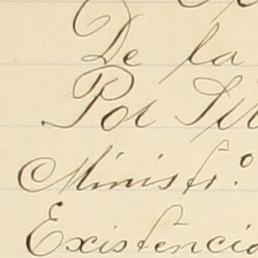 De la
Por
Ministr.º
Existencia